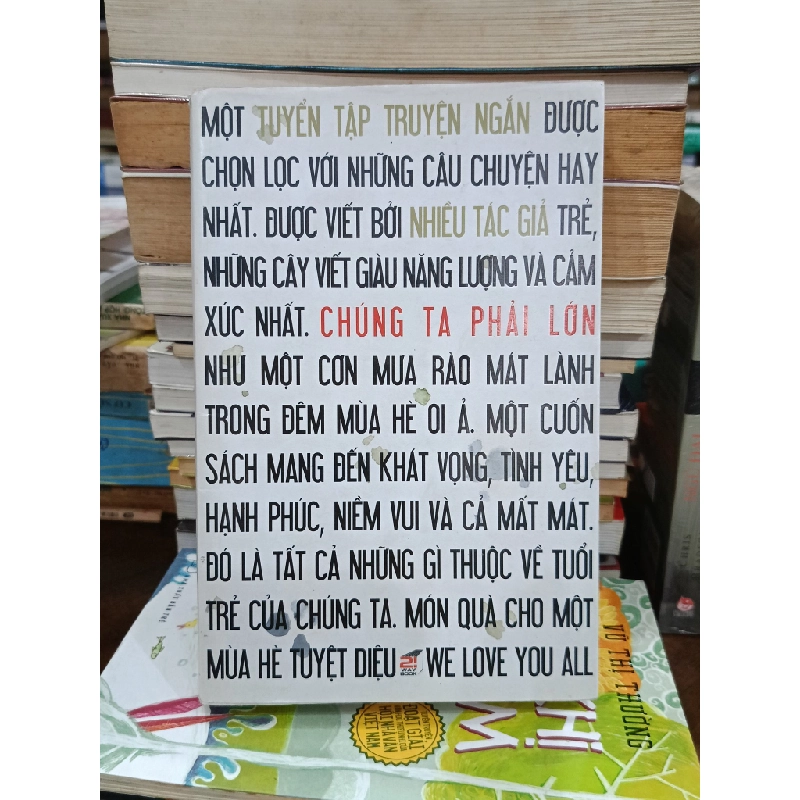 MỘT TUYỂN TẬP TRUYỆN NGẮN ĐƯỢC
CHỌN LỌC VỚI NHỮNG CÂU CHUYỆN HAY
NHẤT. ĐƯỢC VIẾT BỞI NHIỀU TÁC GIẢ TRẺ,
NHỮNG CÂY VIẾT GIÀU NĂNG LƯỢNG VÀ CẢM
XÚC NHẤT. CHÚNG TA PHẢI LỚN
NHƯ MỘT CƠN MƯA RÀO MÁT LÀNH
TRONG ĐÊM MÙA HÈ OI Ả. MỘT CUỐN
SÁCH MANG ĐẾN KHÁT VỌNG, TÌNH YÊU,
HẠNH PHÚC, NIỀM VUI VÀ CẢ MẤT MÁT.
ĐÓ LÀ TẤT CẢ NHỮNG GÌ THUỘC VỀ TUỔI
TRẺ CỦA CHÚNG TA. MÓN QUÀ CHO MỘT
MÙA HÈ TUYỆT DIỆU WE LOVE YOU ALL
VÕ THỊ THƯỜNG
KHI
ĐOẠT GIẢI
HỘI NHÀ VĂN
VIỆT NAM